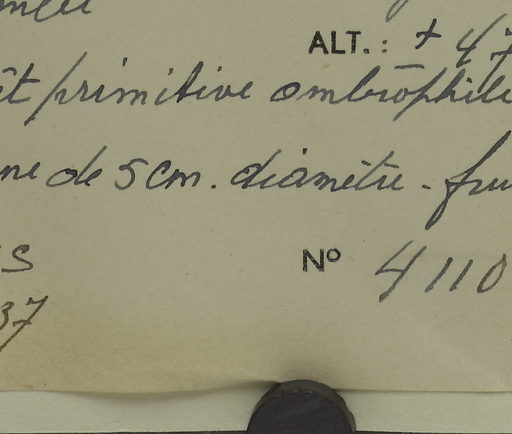 ALT. : ± 47
êt primitive ombrophile
ne de 5 cm. diamètre - fru
S
Nº 4110
37